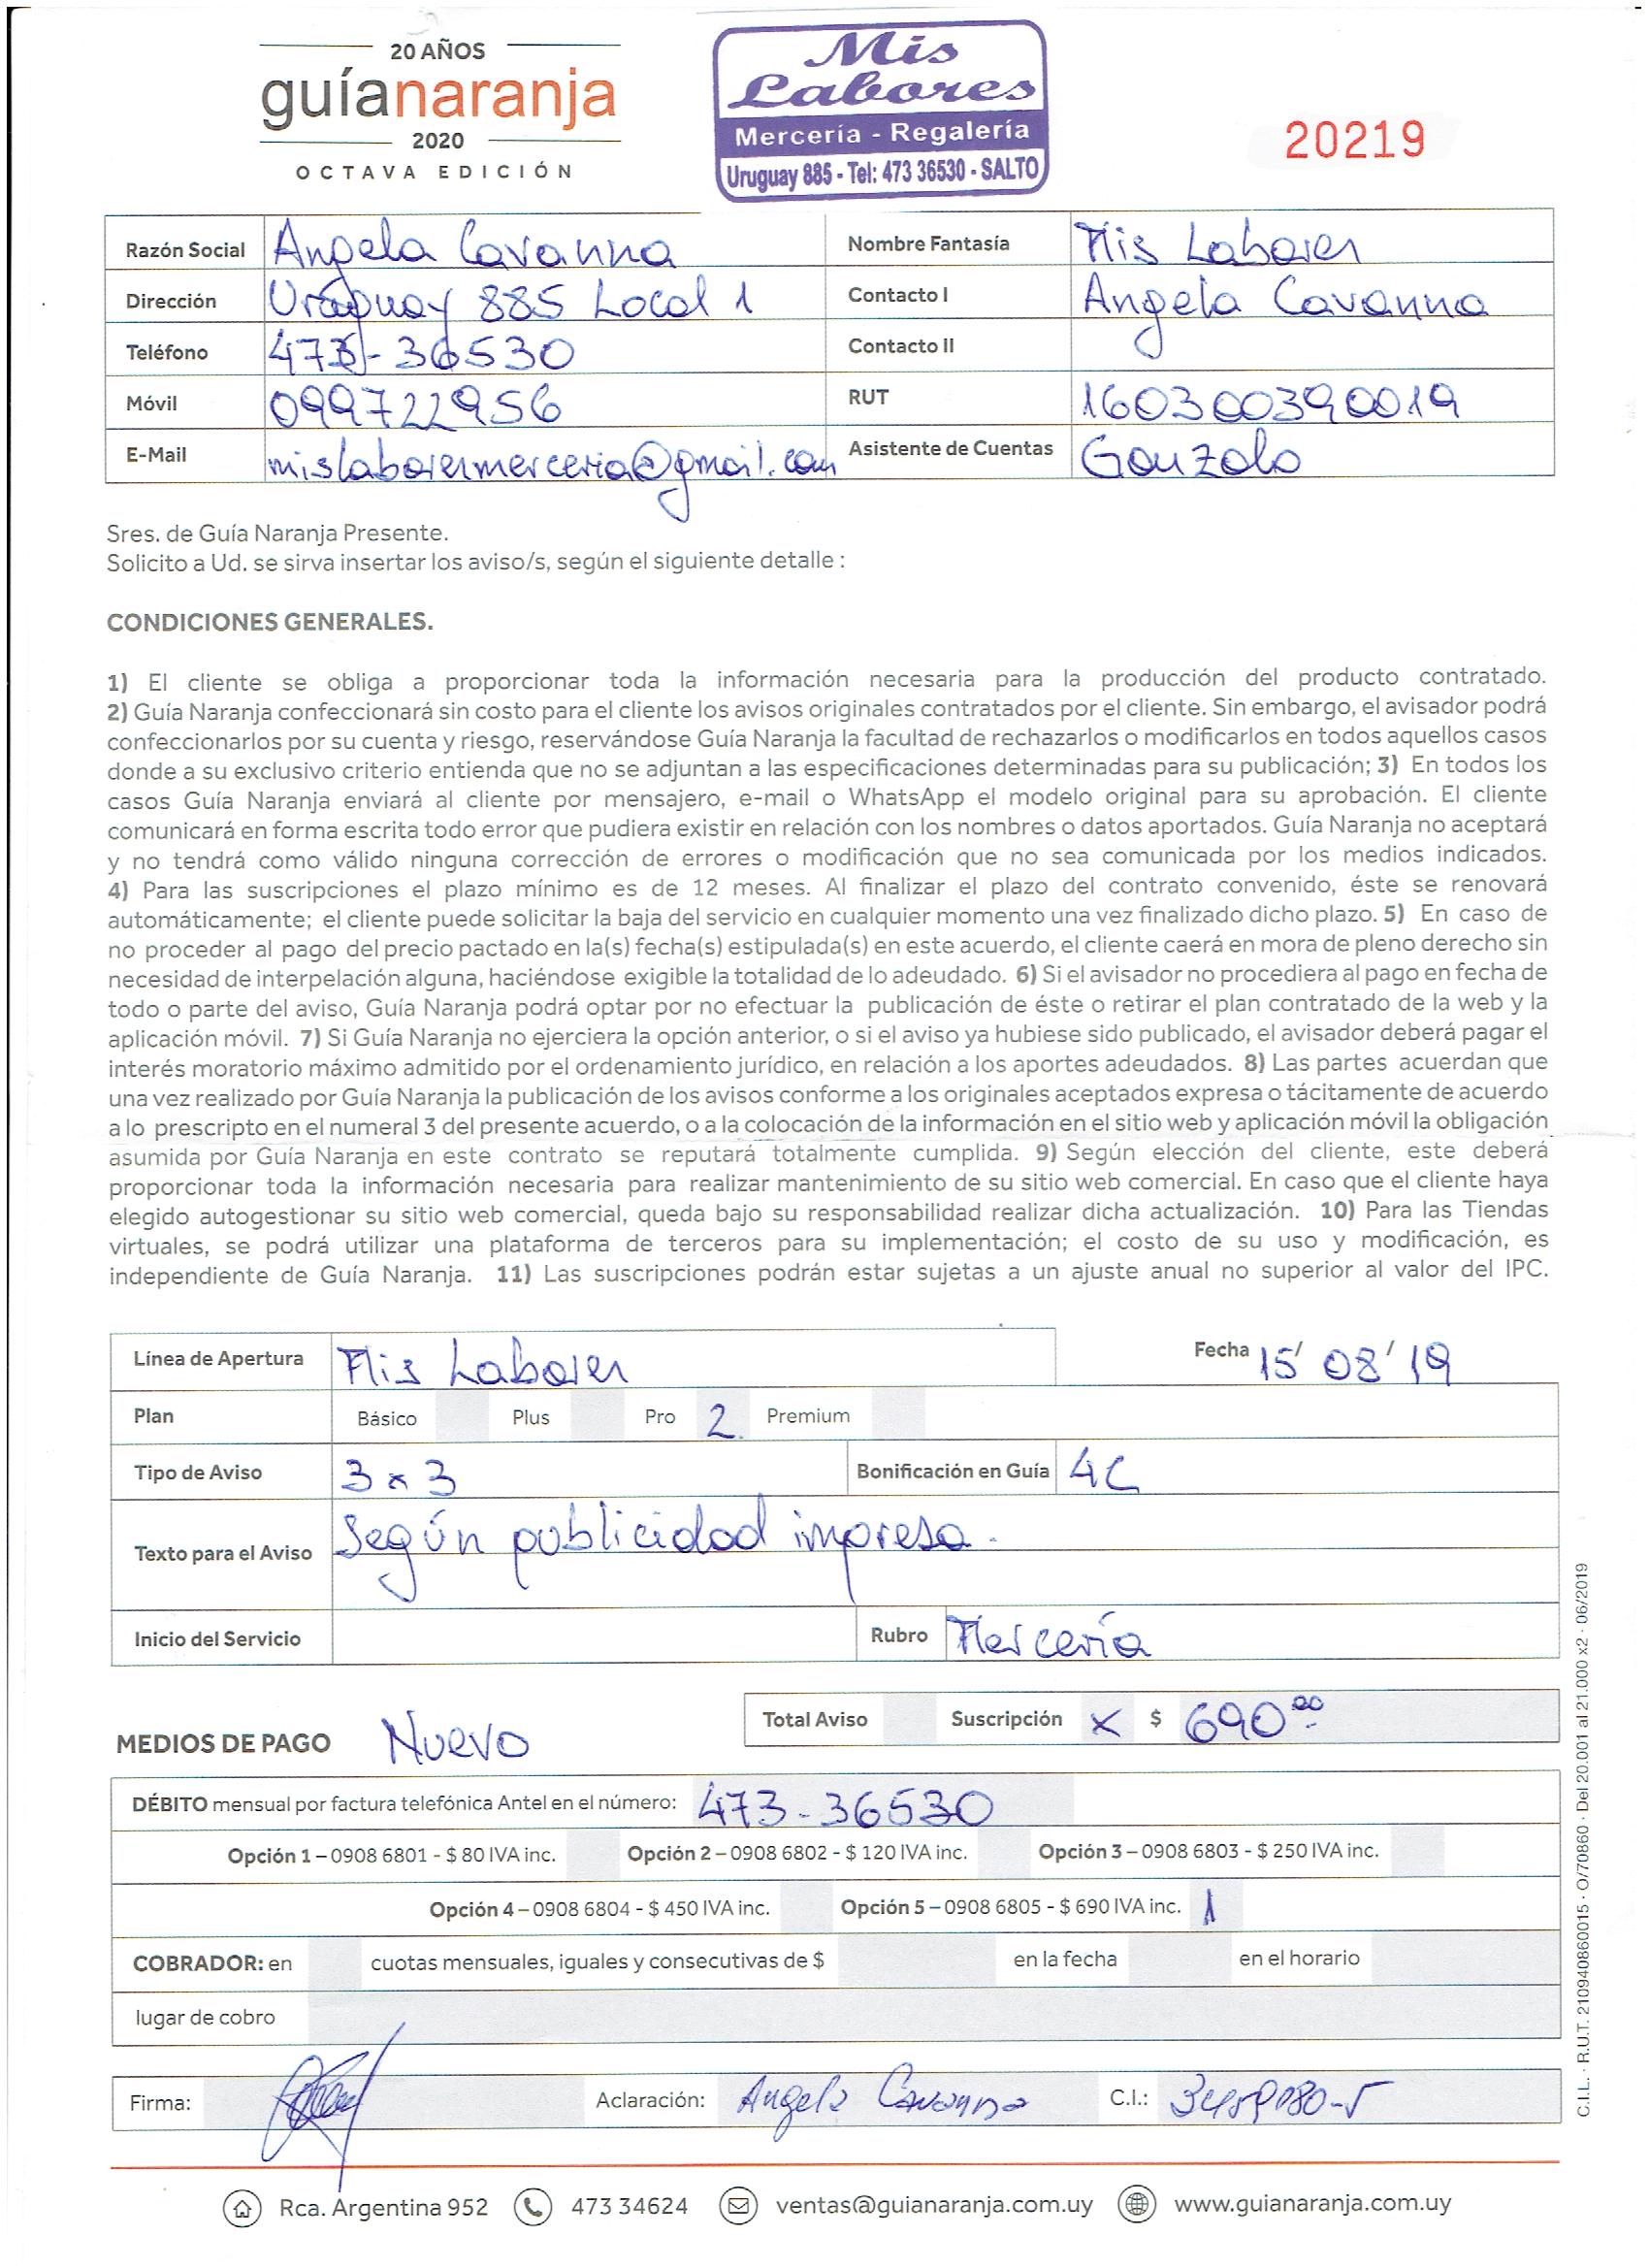 20 AÑOS
guíanaranja
2020
OCTAVA EDICIÓN
Mis
Labores
Mercería - Regalería
Uruguay 885 - Tel: 473 36530 - SALTO
20219
Razón Social Angela Cavanna Nombre Fantasía Mis Labores
Dirección Uruguay 885 Local 1 Contacto I Angela Cavanna
Teléfono 473-36530 Contacto II
Móvil 099722956 RUT 160300390019
E-Mail mislaboresmerceria@gmail.com Asistente de Cuentas Gonzalo
Sres. de Guía Naranja Presente.
Solicito a Ud. se sirva insertar los aviso/s, según el siguiente detalle :
CONDICIONES GENERALES.
1) El cliente se obliga a proporcionar toda la información necesaria para la producción del producto contratado.
2) Guía Naranja confeccionará sin costo para el cliente los avisos originales contratados por el cliente. Sin embargo, el avisador podrá
confeccionarlos por su cuenta y riesgo, reservándose Guía Naranja la facultad de rechazarlos o modificarlos en todos aquellos casos
donde a su exclusivo criterio entienda que no se adjuntan a las especificaciones determinadas para su publicación; 3) En todos los
casos Guía Naranja enviará al cliente por mensajero, e-mail o WhatsApp el modelo original para su aprobación. El cliente
comunicará en forma escrita todo error que pudiera existir en relación con los nombres o datos aportados. Guía Naranja no aceptará
y no tendrá como válido ninguna corrección de errores o modificación que no sea comunicada por los medios indicados.
4) Para las suscripciones el plazo mínimo es de 12 meses. Al finalizar el plazo del contrato convenido, éste se renovará
automáticamente; el cliente puede solicitar la baja del servicio en cualquier momento una vez finalizado dicho plazo. 5) En caso de
no proceder al pago del precio pactado en la(s) fecha(s) estipulada(s) en este acuerdo, el cliente caerá en mora de pleno derecho sin
necesidad de interpelación alguna, haciéndose exigible la totalidad de lo adeudado. 6) Si el avisador no procediera al pago en fecha de
todo o parte del aviso, Guía Naranja podrá optar por no efectuar la publicación de éste o retirar el plan contratado de la web y la
aplicación móvil. 7) Si Guía Naranja no ejerciera la opción anterior, o si el aviso ya hubiese sido publicado, el avisador deberá pagar el
interés moratorio máximo admitido por el ordenamiento jurídico, en relación a los aportes adeudados. 8) Las partes acuerdan que
una vez realizado por Guía Naranja la publicación de los avisos conforme a los originales aceptados expresa o tácitamente de acuerdo
a lo prescripto en el numeral 3 del presente acuerdo, o a la colocación de la información en el sitio web y aplicación móvil la obligación
asumida por Guía Naranja en este contrato se reputará totalmente cumplida. 9) Según elección del cliente, este deberá
proporcionar toda la información necesaria para realizar mantenimiento de su sitio web comercial. En caso que el cliente haya
elegido autogestionar su sitio web comercial, queda bajo su responsabilidad realizar dicha actualización. 10) Para las Tiendas
virtuales, se podrá utilizar una plataforma de terceros para su implementación; el costo de su uso y modificación, es
independiente de Guía Naranja. 11) Las suscripciones podrán estar sujetas a un ajuste anual no superior al valor del IPC.
Línea de Apertura Mis Labores Fecha 15/ 08/ 19
Plan Básico Plus Pro 2. Premium
Tipo de Aviso 3x3 Bonificación en Guía 4C
Texto para el Aviso Según publicidad impresa.
Inicio del Servicio Rubro Mercería
MEDIOS DE PAGO Nuevo Total Aviso Suscripción X $ 690 00
DÉBITO mensual por factura telefónica Antel en el número: 473-36530
Opción 1 – 0908 6801 - $ 80 IVA inc. Opción 2 – 0908 6802 - $ 120 IVA inc. Opción 3 – 0908 6803 - $ 250 IVA inc.
Opción 4 – 0908 6804 - $ 450 IVA inc. Opción 5 – 0908 6805 - $ 690 IVA inc. 1
COBRADOR: en cuotas mensuales, iguales y consecutivas de $ en la fecha en el horario
lugar de cobro
Firma: Aclaración: Angela Cavanna C.I.:
Rca. Argentina 952 473 34624 ventas@guianaranja.com.uy www.guianaranja.com.uy
C.I.L. · R.U.T. 210940860015 · O/70860 · Del 20.001 al 21.000 x2 · 06/2019